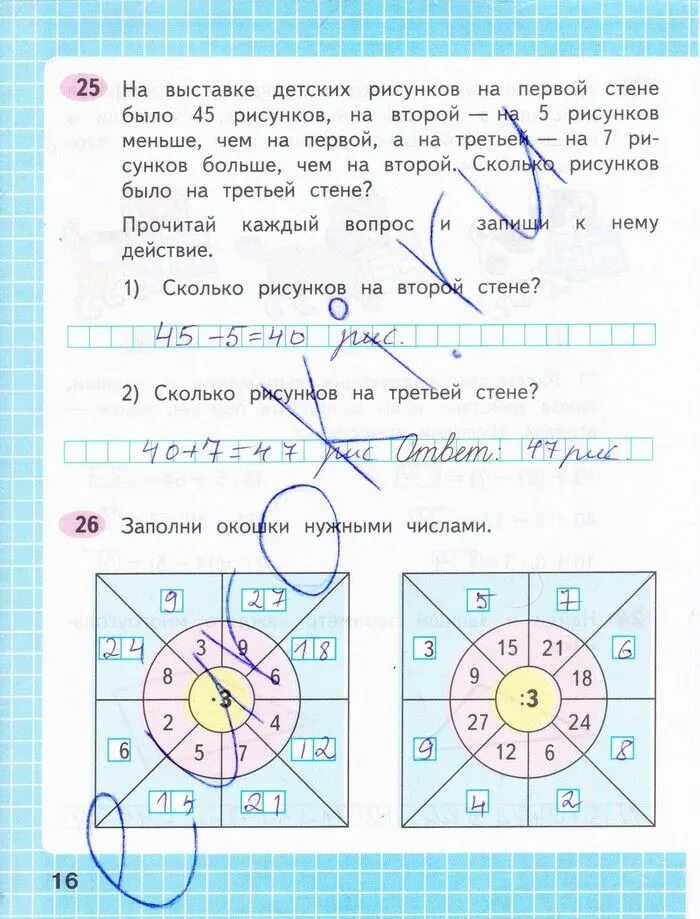 25 На выставке детских рисунков на первой стене
было 45 рисунков, на второй — на 5 рисунков
меньше, чем на первой, а на третьей — на 7 ри-
сунков больше, чем на второй. Сколько рисунков
было на третьей стене?
Прочитай каждый вопрос и запиши к нему
действие.
1) Сколько рисунков на второй стене?
45-5=40 рис.
2) Сколько рисунков на третьей стене?
40+7=47 рис Ответ: 47 рис.
26 Заполни окошки нужными числами.
9 27 5 7
24 3 9 18 3 15 21 6
8 6 9 18
·3 :3
2 4 27 24
6 5 7 12 9 12 6 8
15 21 4 2
16